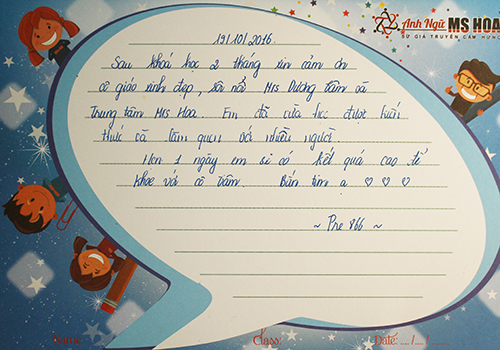 Anh Ngữ MS HOA
SỨ GIẢ TRUYỀN CẢM HỨNG
19/10/2016.
Sau khoá học 2 tháng xin cảm ơn
cô giáo xinh đẹp, sôi nổi Mrs Dương tâm và
Trung tâm Mrs Hoa. Em đã vừa học được kiến
thức và làm quen với nhiều người.
Hẹn 1 ngày em sẽ có kết quả cao để
khoe với cô Tâm. Bắn tim ạ ♡ ♡ ♡
~ Pre 866 ~
Name:
Class:
Date: .../.../...